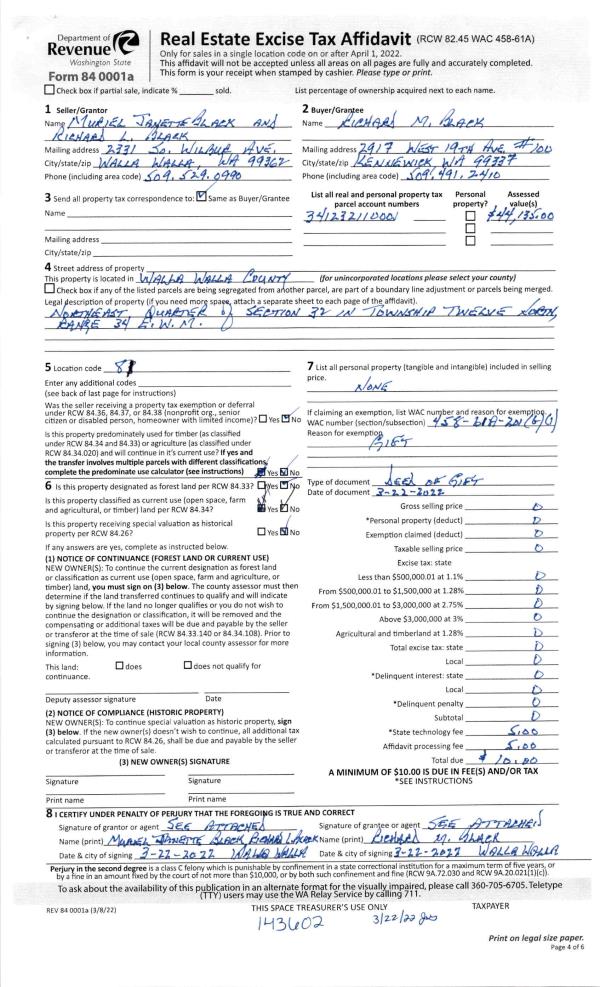 Department of
Revenue
Washington State
Form 84 0001a
Real Estate Excise Tax Affidavit (RCW 82.45 WAC 458-61A)
Only for sales in a single location code on or after April 1, 2022.
This affidavit will not be accepted unless all areas on all pages are fully and accurately completed.
This form is your receipt when stamped by cashier. Please type or print.
Check box if partial sale, indicate % sold.
List percentage of ownership acquired next to each name.
1 Seller/Grantor
Name MURIEL JANETTE BLACK AND
RICHARD L. BLACK
Mailing address 2331 SO. WILBUR AVE.
City/state/zip WALLA WALLA, WA 99362
Phone (including area code) 509.529.0990
2 Buyer/Grantee
Name RICHARD M. BLACK
Mailing address 2917 WEST 19TH AVE #100
City/state/zip KENNEWICK WA 99337
Phone (including area code) 509.491.2410
3 Send all property tax correspondence to: Same as Buyer/Grantee
Name
Mailing address
City/state/zip
List all real and personal property tax
parcel account numbers
Personal
property?
Assessed
value(s)
341232110001
$44,135.00
4 Street address of property
This property is located in WALLA WALLA COUNTY (for unincorporated locations please select your county)
Check box if any of the listed parcels are being segregated from another parcel, are part of a boundary line adjustment or parcels being merged.
Legal description of property (if you need more space, attach a separate sheet to each page of the affidavit).
NORTHEAST QUARTER of SECTION 32 IN TOWNSHIP TWELVE NORTH,
RANGE 34 E.W.M.
5 Location code
Enter any additional codes
(see back of last page for instructions)
Was the seller receiving a property tax exemption or deferral
under RCW 84.36, 84.37, or 84.38 (nonprofit org., senior
citizen or disabled person, homeowner with limited income)? Yes No
Is this property predominately used for timber (as classified
under RCW 84.34 and 84.33) or agriculture (as classified under
RCW 84.34.020) and will continue in it's current use? If yes and
the transfer involves multiple parcels with different classifications,
complete the predominate use calculator (see instructions) Yes No
6 Is this property designated as forest land per RCW 84.33? Yes No
Is this property classified as current use (open space, farm
and agricultural, or timber) land per RCW 84.34? Yes No
Is this property receiving special valuation as historical
property per RCW 84.26? Yes No
If any answers are yes, complete as instructed below.
(1) NOTICE OF CONTINUANCE (FOREST LAND OR CURRENT USE)
NEW OWNER(S): To continue the current designation as forest land
or classification as current use (open space, farm and agriculture, or
timber) land, you must sign on (3) below. The county assessor must then
determine if the land transferred continues to qualify and will indicate
by signing below. If the land no longer qualifies or you do not wish to
continue the designation or classification, it will be removed and the
compensating or additional taxes will be due and payable by the seller
or transferor at the time of sale (RCW 84.33.140 or 84.34.108). Prior to
signing (3) below, you may contact your local county assessor for more
information.
This land: does does not qualify for
continuance.
Deputy assessor signature Date
(2) NOTICE OF COMPLIANCE (HISTORIC PROPERTY)
NEW OWNER(S): To continue special valuation as historic property, sign
(3) below. If the new owner(s) doesn't wish to continue, all additional tax
calculated pursuant to RCW 84.26, shall be due and payable by the seller
or transferor at the time of sale.
(3) NEW OWNER(S) SIGNATURE
Signature Signature
Print name Print name
7 List all personal property (tangible and intangible) included in selling
price.
NONE
If claiming an exemption, list WAC number and reason for exemption.
WAC number (section/subsection) 458-61A-201(b)(1)
Reason for exemption
GIFT
Type of document DEED OF GIFT
Date of document 3-22-2022
Gross selling price 0
*Personal property (deduct) 0
Exemption claimed (deduct) 0
Taxable selling price 0
Excise tax: state
Less than $500,000.01 at 1.1% 0
From $500,000.01 to $1,500,000 at 1.28% 0
From $1,500,000.01 to $3,000,000 at 2.75% 0
Above $3,000,000 at 3% 0
Agricultural and timberland at 1.28% 0
Total excise tax: state 0
Local 0
*Delinquent interest: state 0
Local 0
*Delinquent penalty 0
Subtotal 0
*State technology fee 5.00
Affidavit processing fee 5.00
Total due $ 10.00
A MINIMUM OF $10.00 IS DUE IN FEE(S) AND/OR TAX
*SEE INSTRUCTIONS
8 I CERTIFY UNDER PENALTY OF PERJURY THAT THE FOREGOING IS TRUE AND CORRECT
Signature of grantor or agent SEE ATTACHED Signature of grantee or agent SEE ATTACHED
Name (print) MURIEL JANETTE BLACK RICHARD L BLACK Name (print) RICHARD M. BLACK
Date & city of signing 3-22-2022 WALLA WALLA Date & city of signing 3-22-2022 WALLA WALLA
Perjury in the second degree is a class C felony which is punishable by confinement in a state correctional institution for a maximum term of five years, or
by a fine in an amount fixed by the court of not more than $10,000, or by both such confinement and fine (RCW 9A.72.030 and RCW 9A.20.021(1)(c)).
To ask about the availability of this publication in an alternate format for the visually impaired, please call 360-705-6705. Teletype
(TTY) users may use the WA Relay Service by calling 711.
REV 84 0001a (3/8/22) THIS SPACE TREASURER'S USE ONLY TAXPAYER
143602 3/22/22
Print on legal size paper.
Page 4 of 6